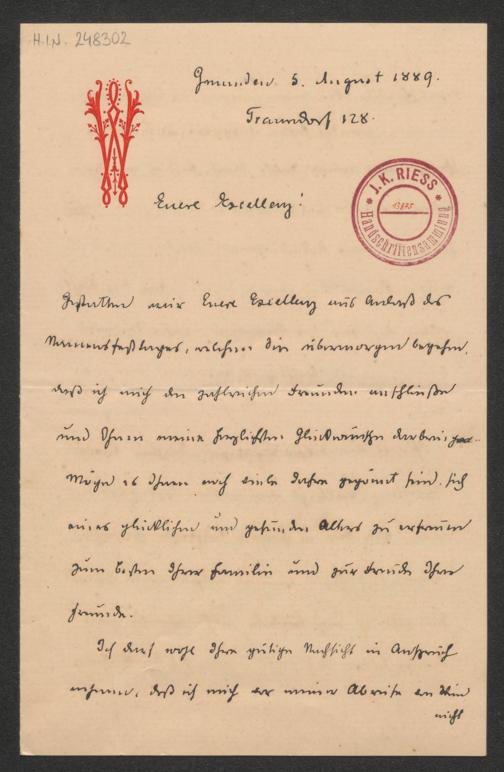 H.I.N. 248302
Gmunden 5. August 1889.
Traundorf 128.
J. K. RIESS
Handschriftensammlung
Euere Excellenz!
Gestatten mir Euere Excellenz aus Anlaß des
Namensfesttages, welchen Sie übermorgen begehen,
daß ich mich den zahlreichen Freunden anschließe
und Ihnen meine herzlichsten Glückwünsche darbringe
Möge es Ihnen noch viele Jahre gegönnt sein, sich
eines glücklichen und gesunden Alters zu erfreuen
zum besten Ihrer Familie und zur Freude Ihrer
Freunde.
Ich darf wohl Ihre gütige Nachsicht in Anspruch
nehmen, daß ich mich vor meiner Abreise von Wien
nicht